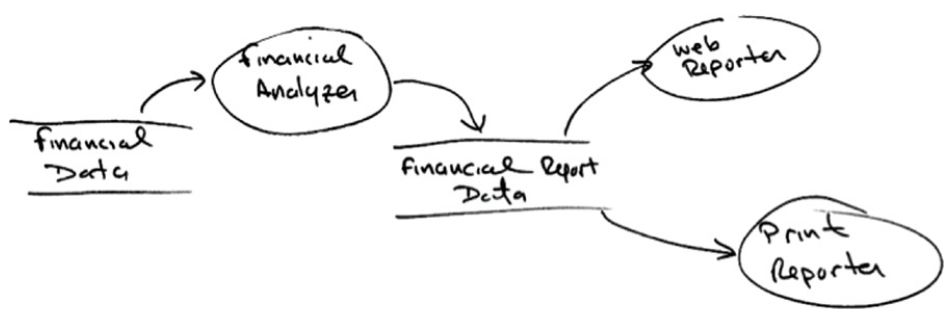 Financial
Data
Financial
Analyzer
Financial Report
Data
Web
Reporter
Print
Reporter